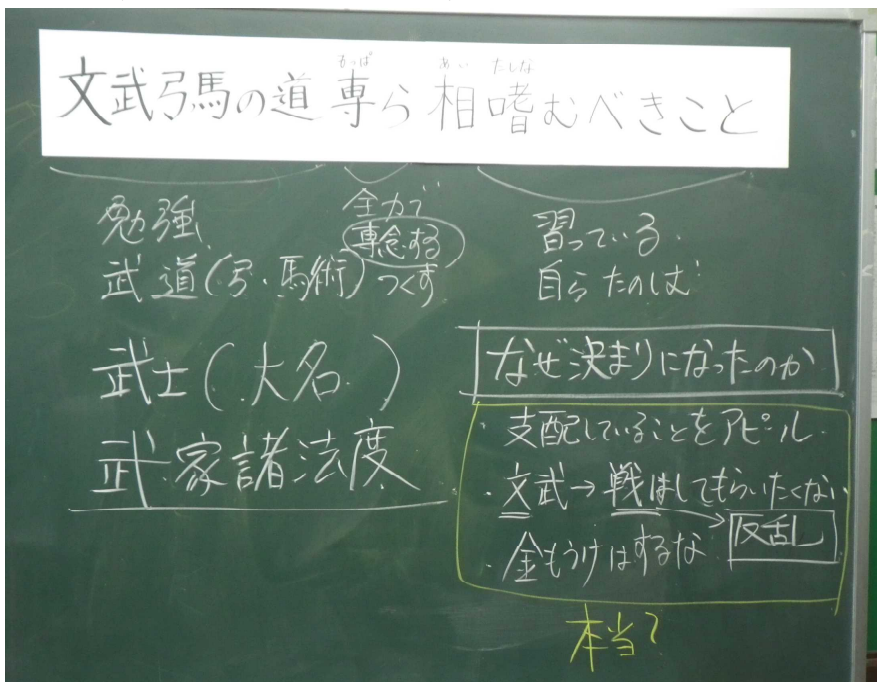 もっぱ あい たしな
文武弓馬の道 専ら 相嗜むべきこと
勉強
武道(弓・馬術)
全力で
専念する
つくす
習っている
自らたのしむ
武士(大名)
武家諸法度
なぜ決まりになったのか
・支配していることをアピール
・文武→戦はしてもらいたくない
反乱
・金もうけはするな
本当?